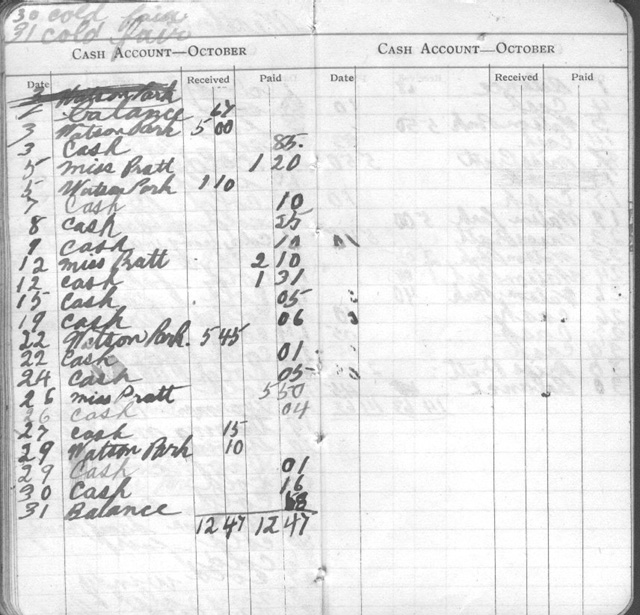 30 cold rain
31 cold fair
CASH ACCOUNT—OCTOBER
Date Received Paid
3 Watson Park
1 balance 67
3 Watson Park 5 00
3 Cash 85.
5 Miss Pratt 1 20
5 Watson Park 1 10
7 Cash 10
8 Cash 25
9 Cash 10
12 Miss Pratt 2 10
12 Cash 1 31
15 Cash 05
19 Cash 06
22 Watson Park. 5 45
22 Cash 01
24 Cash 05
26 Miss Pratt 5 50
26 Cash 04
27 Cash 15
29 Watson Park 10
29 Cash 01
30 Cash 16
31 Balance 68
12 47 12 47
CASH ACCOUNT—OCTOBER
Date Received Paid